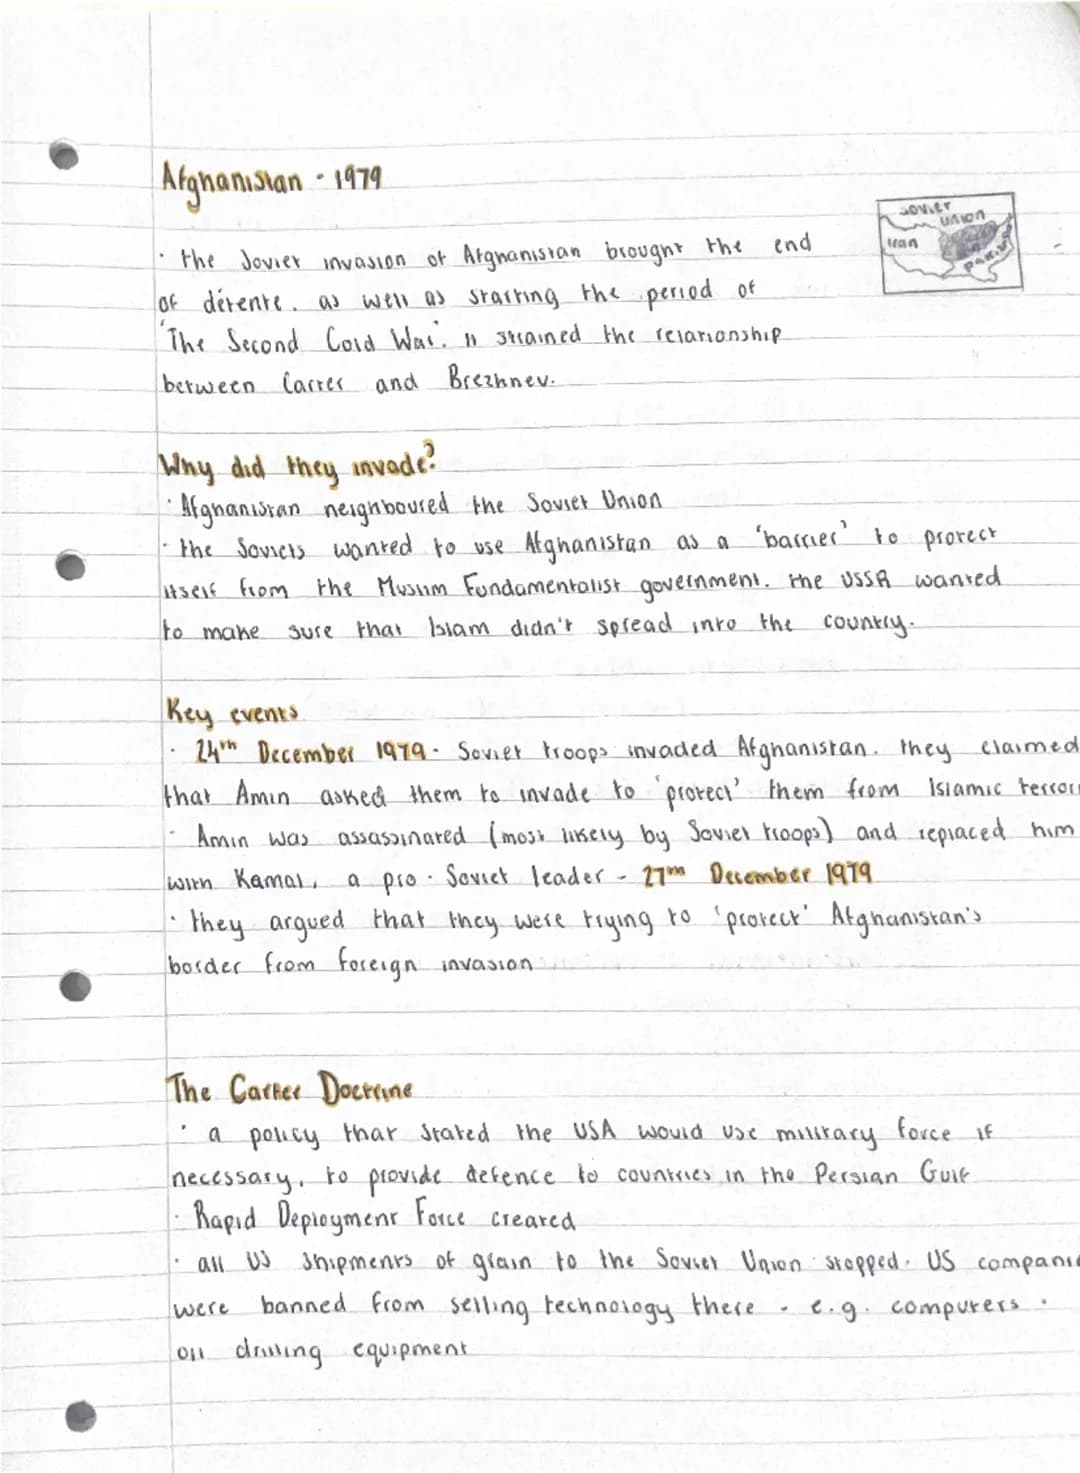 Afghanistan - 1979
Soviet
Union
Iran
· the Soviet invasion of Afghanistan brought the end
of détente, as well as starting the period of
'The Second Cold War'. It strained the relationship
between Carter and Brezhnev.
Why did they invade?
· Afghanistan neighboured the Soviet Union
· the Soviets wanted to use Afghanistan as a 'barrier' to protect
itself from the Muslim Fundamentalist government. the USSR wanted
to make sure that Islam didn't spread into the country.
Key events
· 24th December 1979 - Soviet troops invaded Afghanistan. they claimed
that Amin asked them to invade to 'protect' them from Islamic terror
· Amin was assassinated (most likely by Soviet troops) and replaced him
with Kamal, a pro - Soviet leader - 27th December 1979
· they argued that they were trying to 'protect' Afghanistan's
border from foreign invasion
The Carter Doctrine
· a policy that stated the USA would use military force if
necessary, to provide defence to countries in the Persian Gulf
· Rapid Deployment Force created
· all US shipments of grain to the Soviet Union stopped. US compani
were banned from selling technology there - e.g. computers.
oil drilling equipment